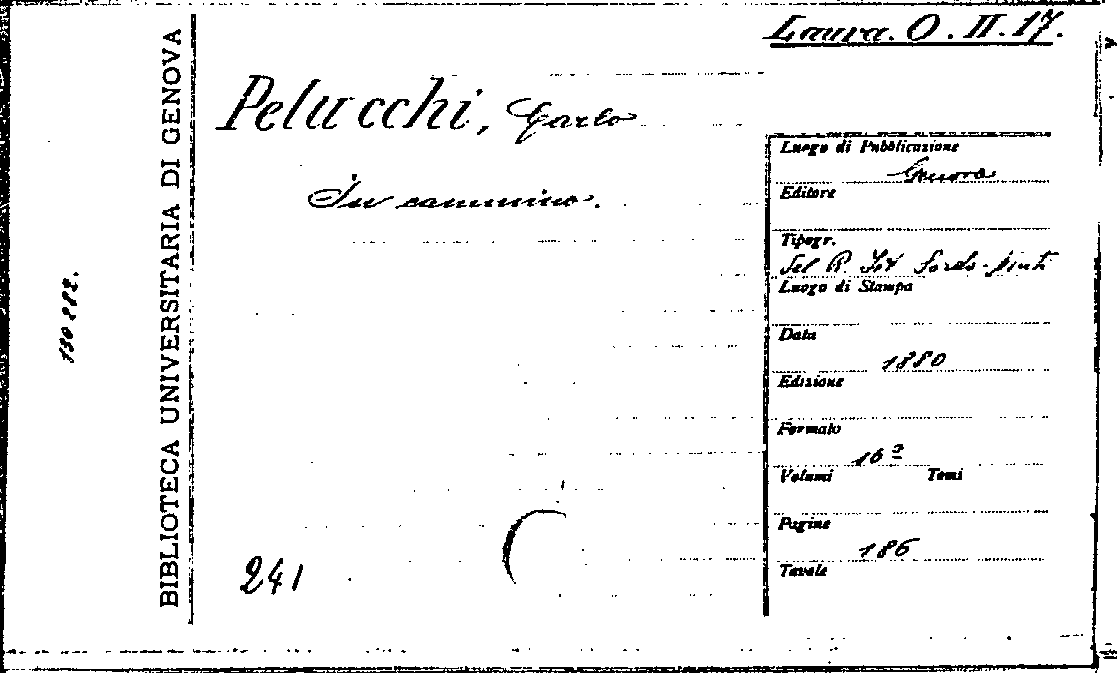 Laura. O. II. 17.
BIBLIOTECA UNIVERSITARIA DI GENOVA
130282.
Pelucchi, Carlo
In cammino.
Luogo di Pubblicazione
Genova
Editore
Tipogr.
Del R. Ist Sordo-Muti
Luogo di Stampa
Data
1880
Edizione
Formato
16º
Volumi Tomi
Pagine
186
Tavole
241